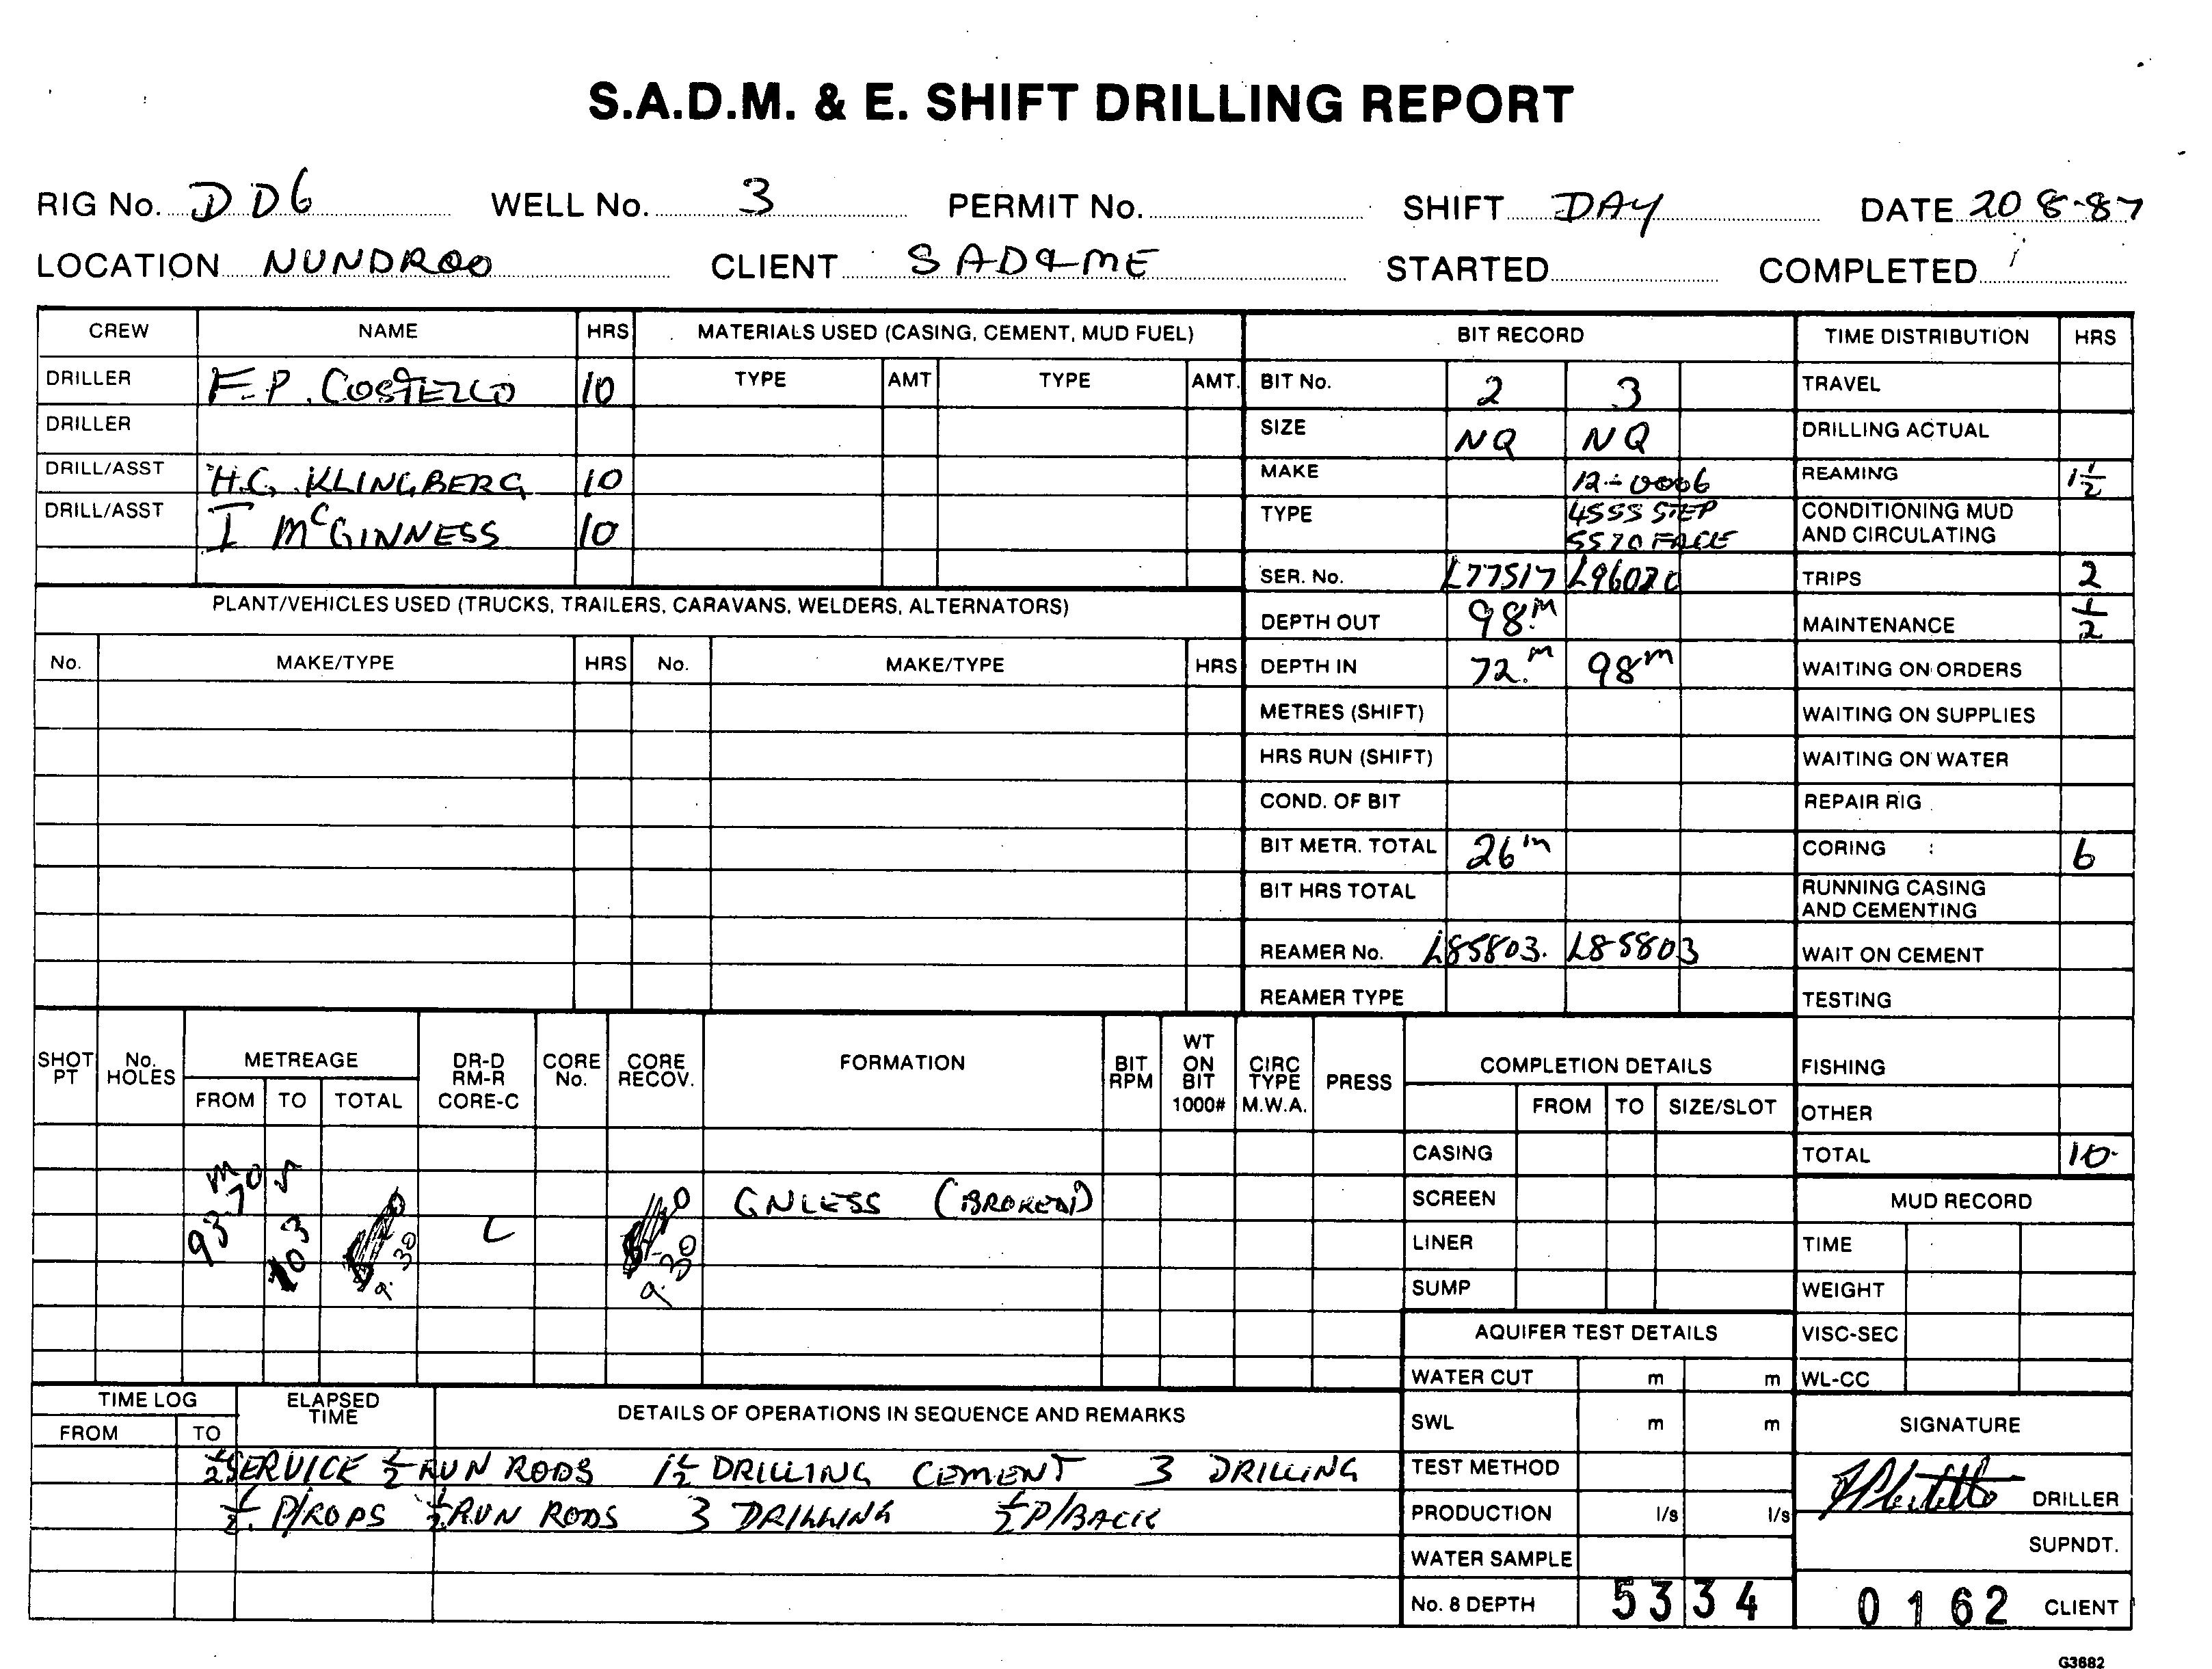 S.A.D.M. & E. SHIFT DRILLING REPORT
RIG No. DD6 WELL No. 3 PERMIT No. SHIFT DAY DATE 20 8-87
LOCATION NUNDROO CLIENT SAD&ME STARTED COMPLETED
CREW NAME HRS MATERIALS USED (CASING, CEMENT, MUD FUEL) BIT RECORD TIME DISTRIBUTION HRS
DRILLER F.P. COSTELLO 10 TYPE AMT TYPE AMT. BIT No. 2 3 TRAVEL
DRILLER SIZE NQ NQ DRILLING ACTUAL
DRILL/ASST H.G. KLINGBERG 10 MAKE 12-0006 REAMING 1½
DRILL/ASST I McGINNESS 10 TYPE 45SS STEP CONDITIONING MUD
FACE AND CIRCULATING
SER. No. L77517 TRIPS 2
PLANT/VEHICLES USED (TRUCKS, TRAILERS, CARAVANS, WELDERS, ALTERNATORS) DEPTH OUT 98.m MAINTENANCE ½
No. MAKE/TYPE HRS No. MAKE/TYPE HRS DEPTH IN 72.m 98m WAITING ON ORDERS
METRES (SHIFT) WAITING ON SUPPLIES
HRS RUN (SHIFT) WAITING ON WATER
COND. OF BIT REPAIR RIG
BIT METR. TOTAL 26m CORING 6
BIT HRS TOTAL RUNNING CASING
AND CEMENTING
REAMER No. L85803. L85803 WAIT ON CEMENT
REAMER TYPE TESTING
SHOT PT No. HOLES METREAGE DR-D RM-R CORE-C CORE No. CORE RECOV. FORMATION BIT RPM WT ON BIT 1000# CIRC TYPE M.W.A. PRESS COMPLETION DETAILS FISHING
FROM TO TOTAL FROM TO SIZE/SLOT OTHER
CASING TOTAL 10
93.70 103 9.30 C 9.30 GNLESS (BROKEN) SCREEN MUD RECORD
LINER TIME
SUMP WEIGHT
AQUIFER TEST DETAILS VISC-SEC
WATER CUT m m WL-CC
TIME LOG ELAPSED TIME DETAILS OF OPERATIONS IN SEQUENCE AND REMARKS SWL m m SIGNATURE
FROM TO
½ SERVICE ½ RUN RODS 1½ DRILLING CEMENT 3 DRILLING TEST METHOD
½ P/RODS ½ RUN RODS 3 DRILLING ½ P/BACK PRODUCTION l/s l/s DRILLER
WATER SAMPLE SUPNDT.
No. 8 DEPTH 5334 0162 CLIENT
G3682